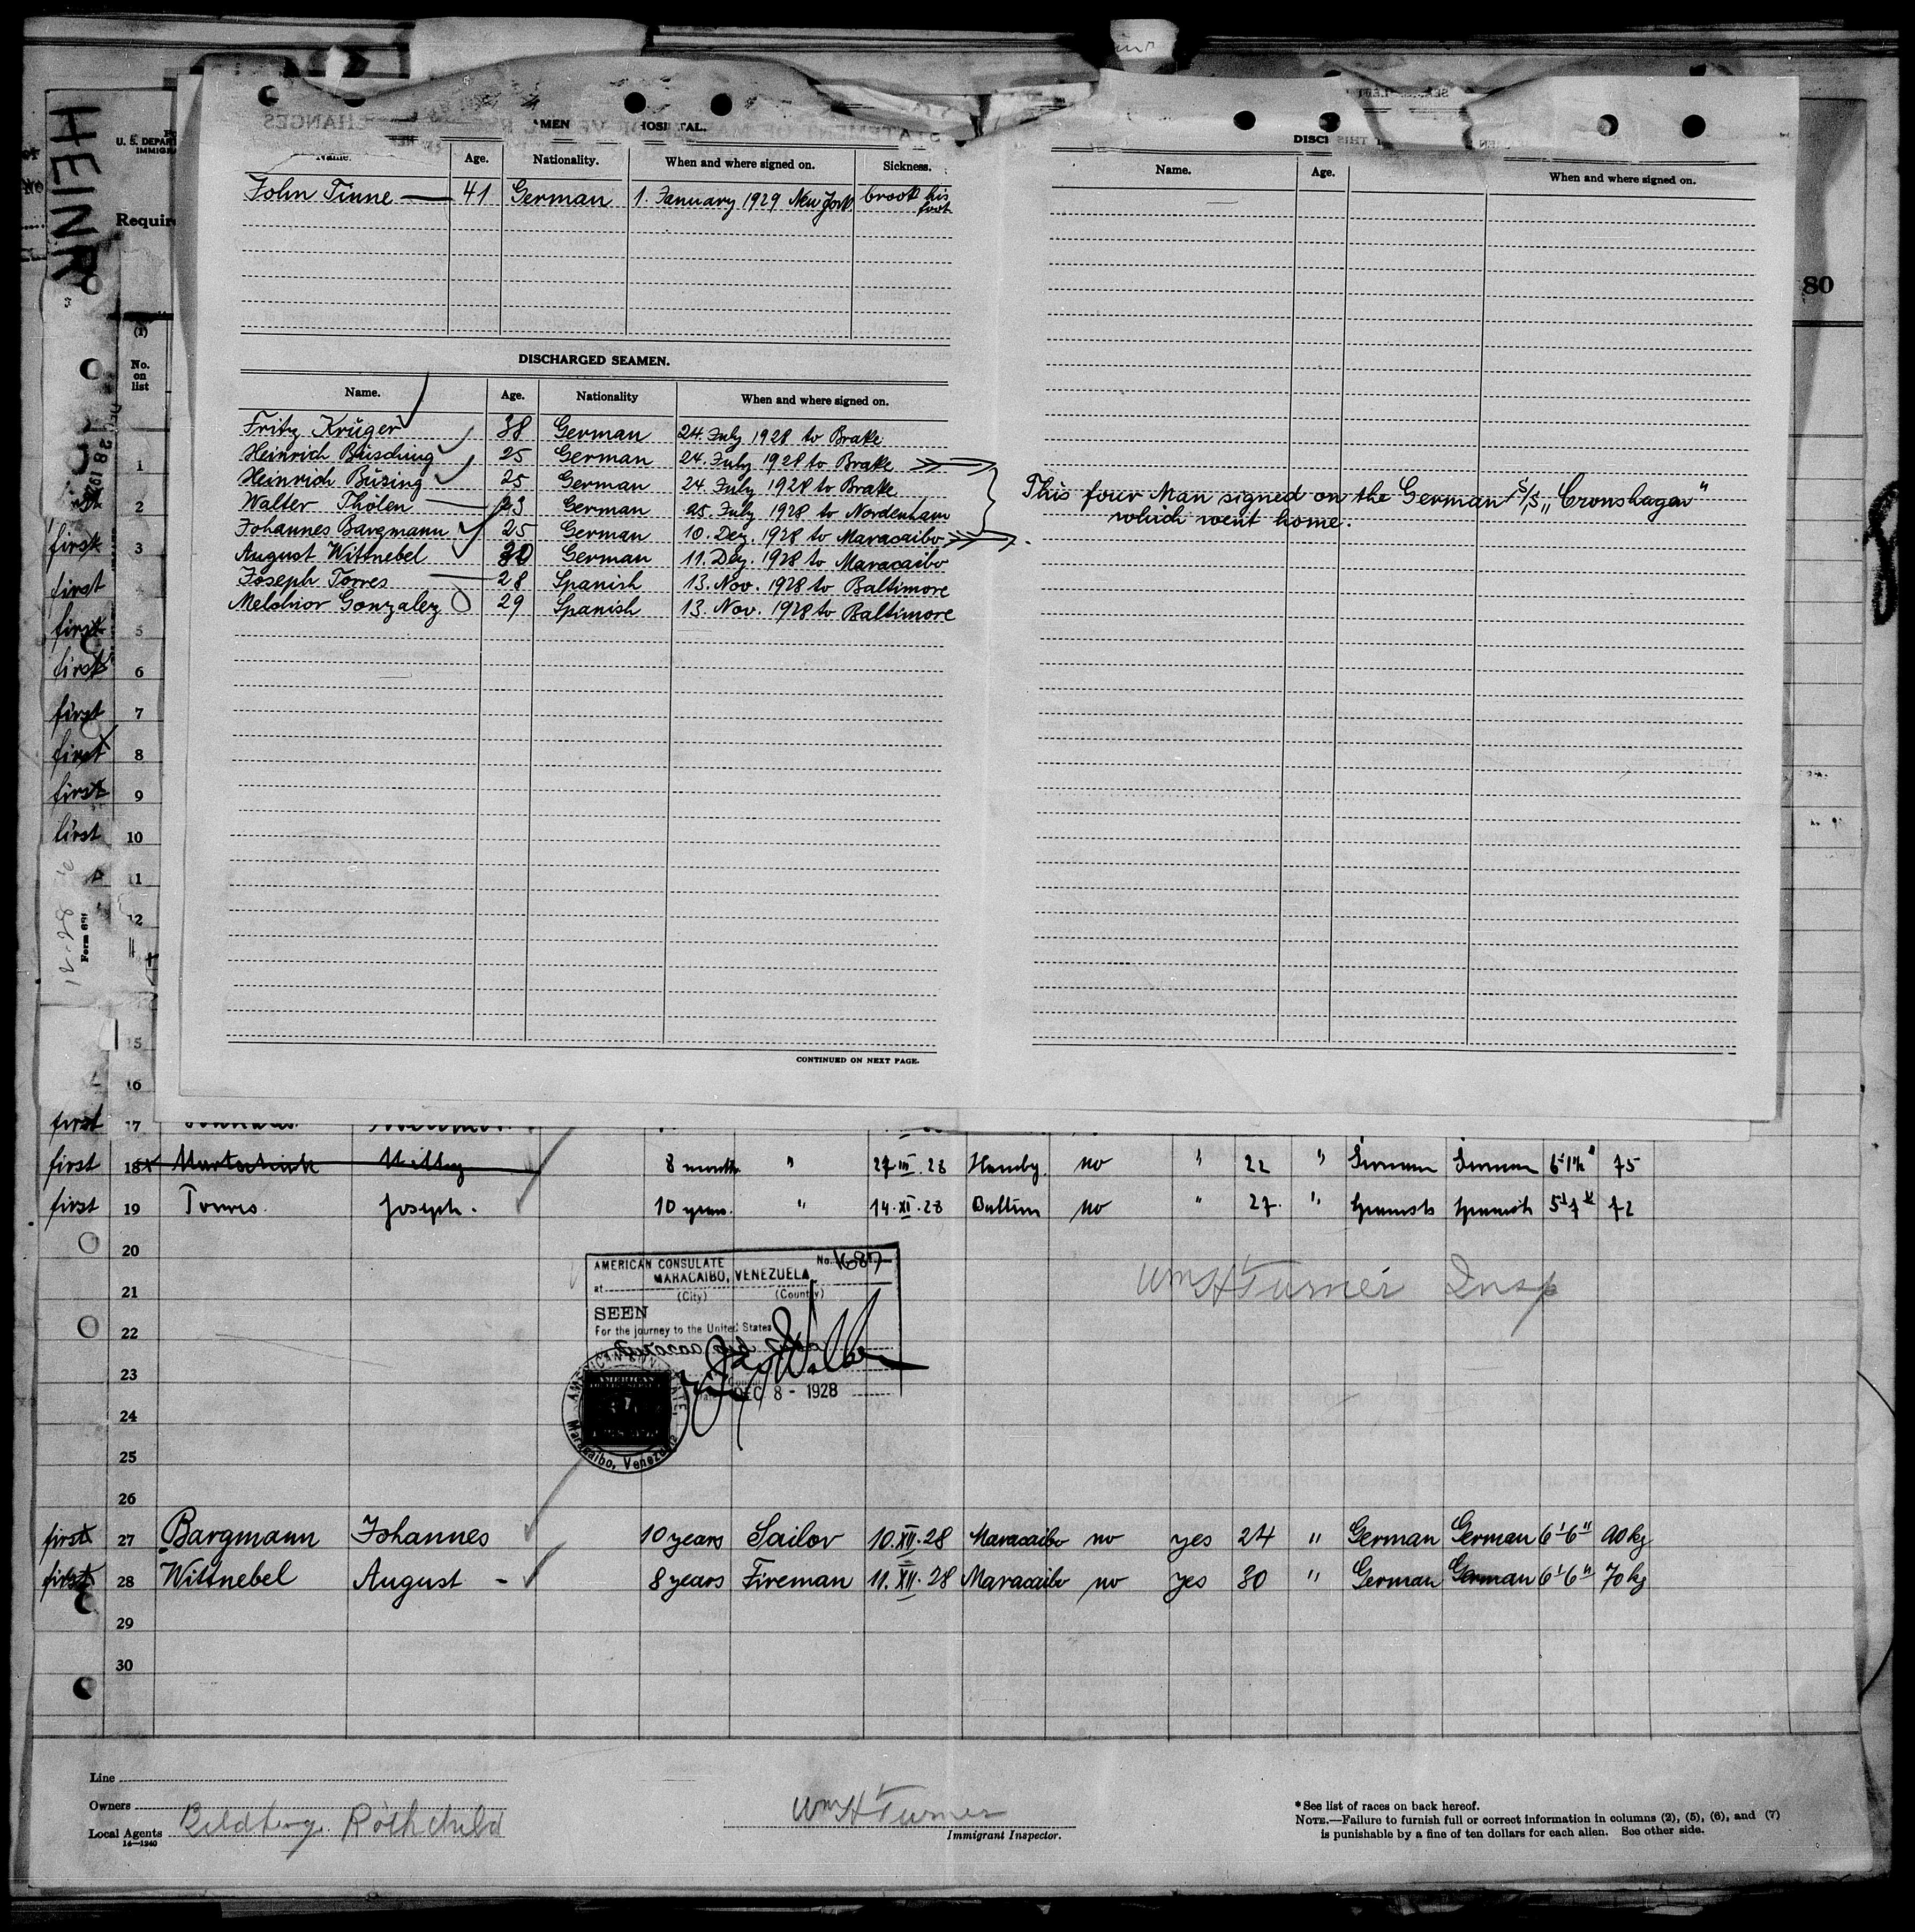 HEINR
U. S. DEPAR
IMMIGRA
Requir
80
AMEN HOSPITAL.
Name. Age. Nationality. When and where signed on. Sickness.
John Tinne — 41 German 1. January 1929 New York brook his foot
DISCHARGED SEAMEN.
Name. Age. Nationality When and where signed on.
Fritz Krüger 38 German 24. July 1928 to Brake
Heinrich Büsching 25 German 24. July 1928 to Brake
Heinrich Büsing 25 German 24 July 1928 to Brake
Walter Thölen — 23 German 25. July 1928 to Nordenham
Johannes Bargmann 25 German 10. Dez. 1928 to Maracaibo
August Wittnebel 30 German 11. Dez. 1928 to Maracaibo
Joseph Torres — 28 Spanish 13. Nov. 1928 to Baltimore
Melchior Gonzalez 29 Spanish 13. Nov. 1928 to Baltimore
CONTINUED ON NEXT PAGE.
DISCH
Name. Age. When and where signed on.
This four Man signed on the German S/S „Cronshagen"
which went home.
(1)
No.
on
list
1
2
first 3
first 4
first 5
first 6
first 7
first 8
first 9
first 10
11
12
Form 689
15
16
first 17
first 18 8 month " 27 III. 28 Hambg. no " 22 " German German 75
first 19 Torres. Joseph. 10 years. " 14. XI. 28 Baltim no " 27. " Spanish Spanish 72
20
21
22
23
24
25
26
AMERICAN CONSULATE No. 1687
at MARACAIBO, VENEZUELA
(City) (Country)
SEEN
For the journey to the United States
DEC 8 - 1928
AMERICAN CONSULATE
Maracaibo, Venezuela
Wm H Turner Insp
first 27 Bargmann Johannes 10 years Sailor 10. XII. 28 Maracaibo no yes 24 " German German 6' 6" 90 kg
first 28 Wittnebel August - 8 years Fireman 11. XII. 28 Maracaibo no yes 30 " German German 6' 6" 70 kg
29
30
Line
Owners
Local Agents Rothchild
14—1240
Wm H Turner
Immigrant Inspector.
* See list of races on back hereof.
NOTE.—Failure to furnish full or correct information in columns (2), (5), (6), and (7)
is punishable by a fine of ten dollars for each alien. See other side.